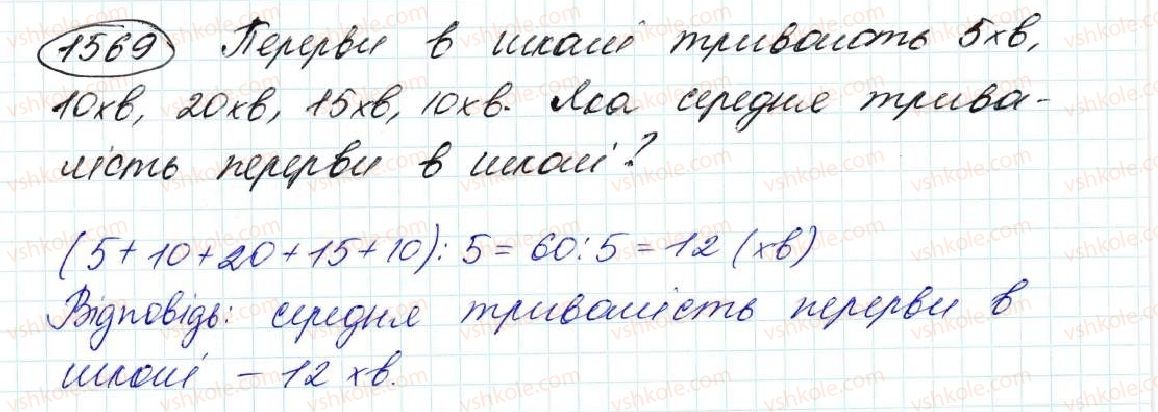 1569 Перерви в школі тривають 5хв,
10хв, 20хв, 15хв, 10хв. Яка середня трива-
лість перерви в школі?
(5+10+20+15+10):5=60:5=12 (хв)
Відповідь: середня тривалість перерви в
школі - 12 хв.